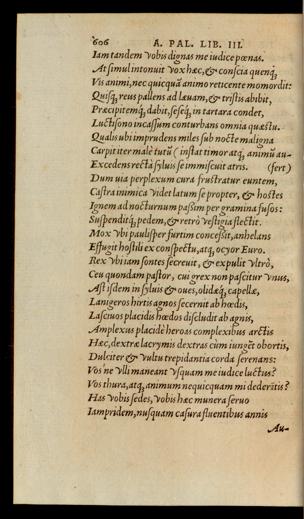 606 A. PAL. LIB. III.
Iam tandem vobis dignas me iudice pœnas.
At simul intonuit vox hæc, & conscia quenq;
Vis animi, nec quicquã animo reticente momordit:
Quisq; reus pallens ad læuam, & tristis abibit,
Præcipitemq; dabit, seseq; in tartara condet,
Luctisono incassum conturbans omnia quæstu.
Qualis ubi imprudens miles sub nocte maligna
Carpit iter malè tutũ (instat timor atq; animũ au-
Excedens recta syluis se immiscuit atris. (fert)
Dum uia perplexum cura frustratur euntem,
Castra inimica videt latum se propter, & hostes
Ignem ad nocturnum passim per gramina fusos:
Suspenditq; pedem, & retrò vestigia flectit.
Mox vbi paulisper furtim concessit, anhelans
Effugit hostili ex conspectu, atq; ocyor Euro.
Rex vbi iam sontes secreuit, & expulit vltrò,
Ceu quondam pastor, cui grex non pascitur vnus,
Ast isdem in syluis & oues, olidæq; capellæ,
Lanigeros hirtis agnos secernit ab hœdis,
Lasciuos placidis hœdos discludit ab agnis,
Amplexus placidè heroas complexibus arctis
Hæc, dextræ lacrymis dextras cùm iunget obortis,
Dulciter & vultu trepidantia corda serenans:
Vos ne vlli maneant vsquam me iudice luctus?
Vos thura, atq; animum nequicquam mi dederitis?
Has vobis sedes, vobis hæc munera seruo
Iampridem, nusquam casura fluentibus annis
Au-